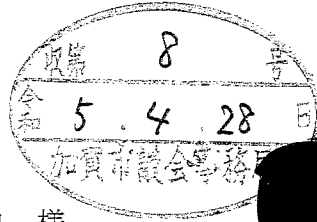 収第 8 号
令和 5.4.28 日
加賀市議会事務局
様